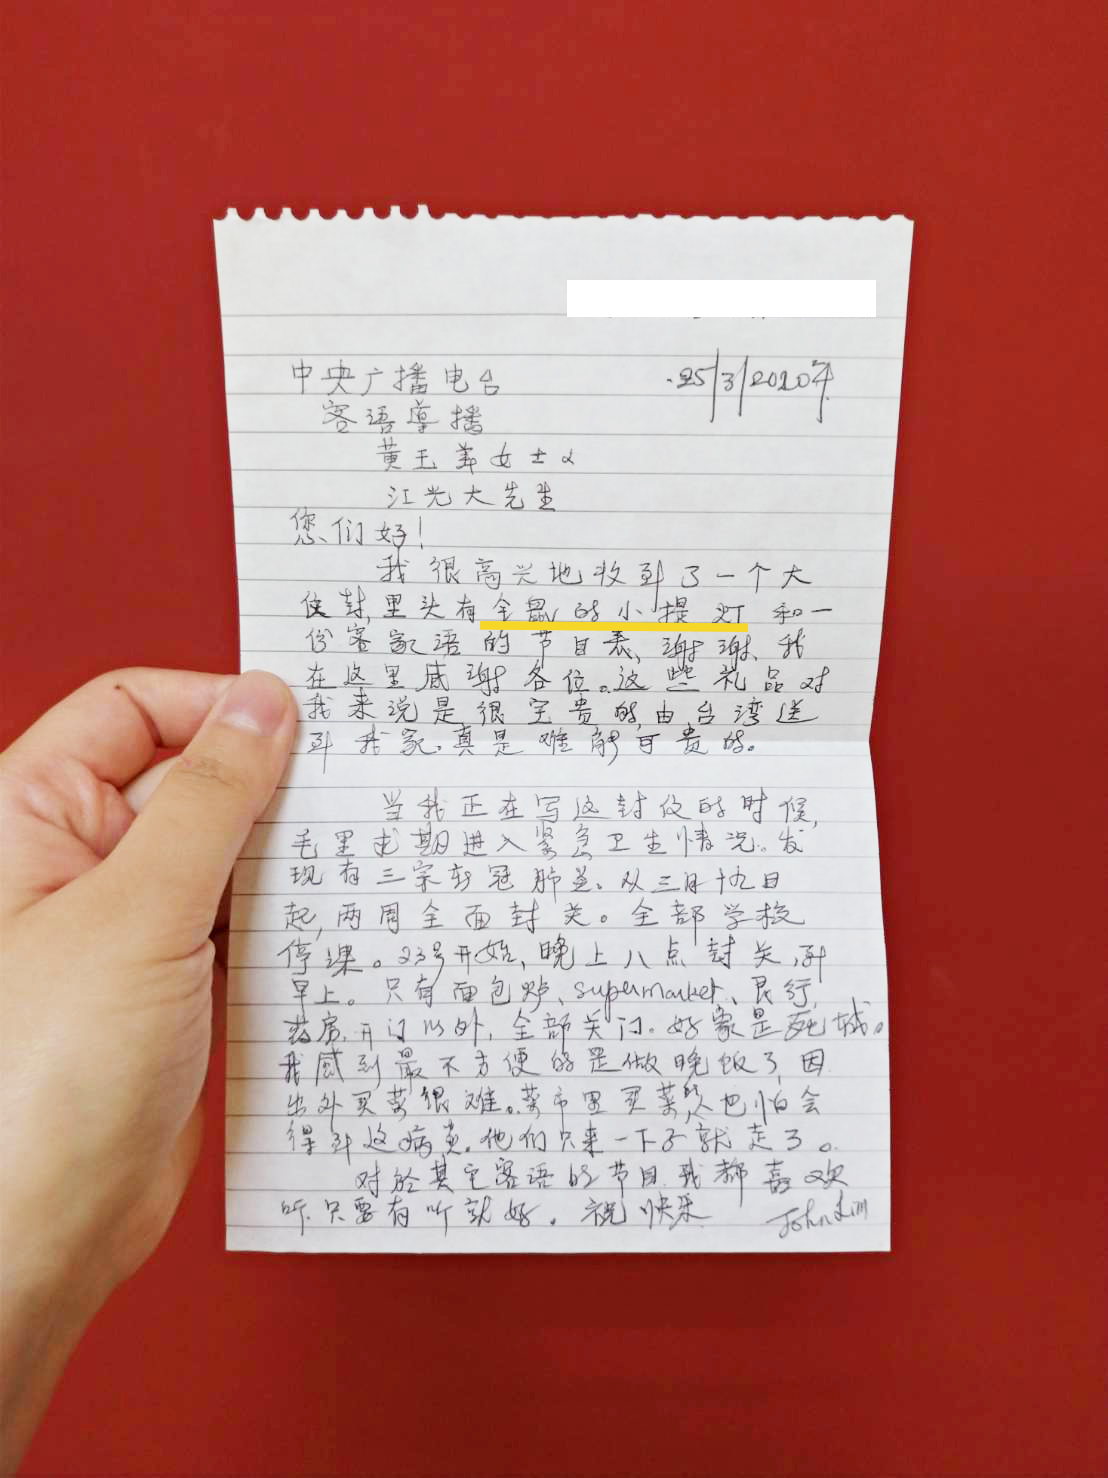 中央广播电台
25/3/2020年
客语导播
黄玉 女士
江光大先生
您们好!
我很高兴地收到了一个大
信封,里头有金鼠的小提灯和一
份客家语的节目表,谢谢,我
在这里感谢各位。这些礼品对
我来说是很宝贵的,由台湾送
到我家,真是难能可贵的。
当我正在写这封信的时候,
毛里求期进入紧急卫生情况。发
现有三宗新冠肺炎、从三月十九日
起,两周全面封关。全部学校
停课。23号开始,晚上八点封关,到
早上。只有面包炉、supermarket、艮行,
药房,开门以外,全部关门。好象是死城。
我感到最不方便的是做晚饭了,因
出外买菜很难。菜市里买菜的人也怕会
得到这病炎,他们只来一下子就走了。
对於其它客语的节目,我都喜欢
听,只要有听就好。祝 快乐
John Lim